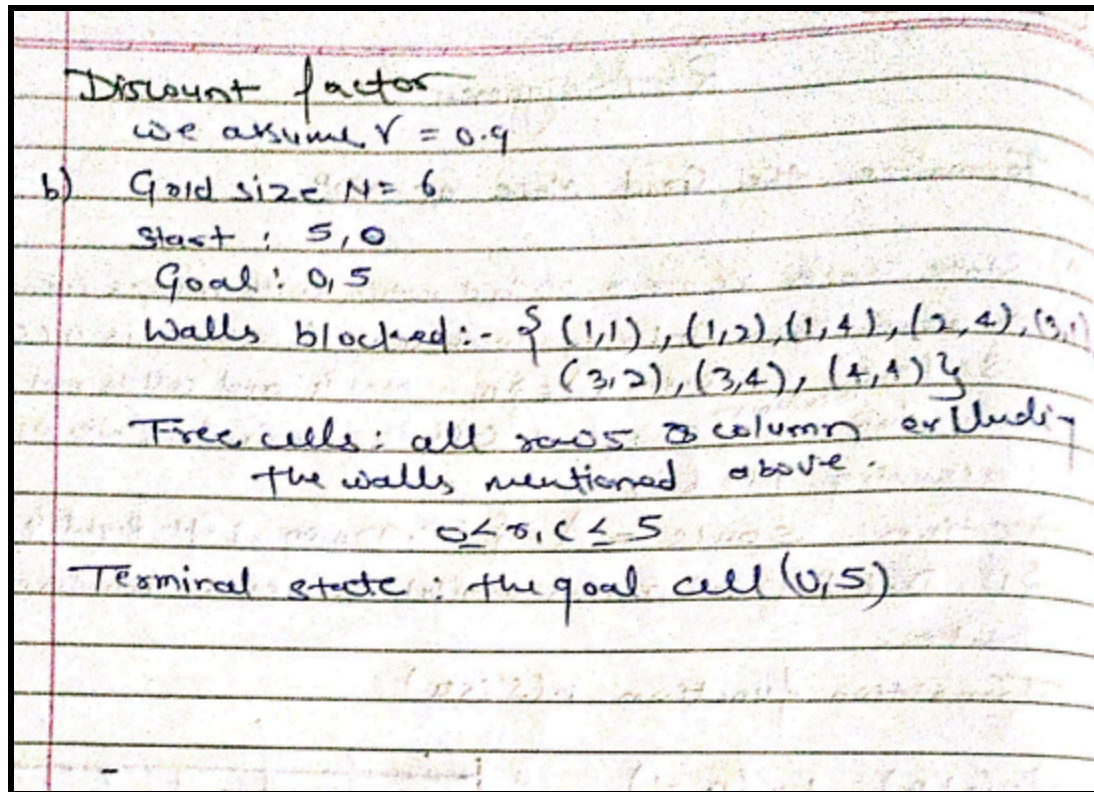 Discount factor
we assume γ = 0.9
b) Grid size N= 6
Start : 5,0
Goal : 0,5
Walls blocked :- { (1,1), (1,2), (1,4), (2,4), (3,1)
(3,2), (3,4), (4,4) }
Free cells : all rows & column excluding
the walls mentioned above.
0≤ r, c ≤ 5
Terminal state : the goal cell (0,5)